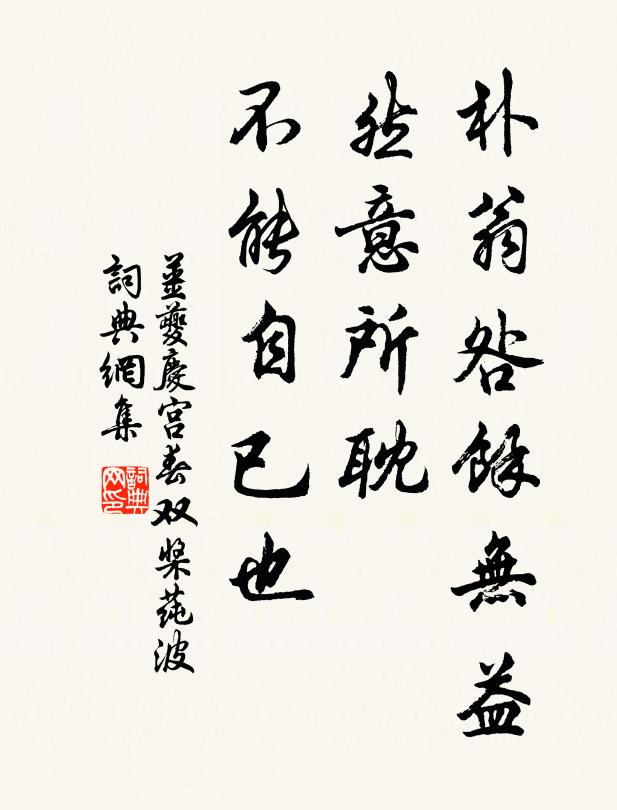 朴翁咎餘無益
然意所耽
不能自已也
薑夔慶宮春双槳莼波
詞典網集
詞典网印